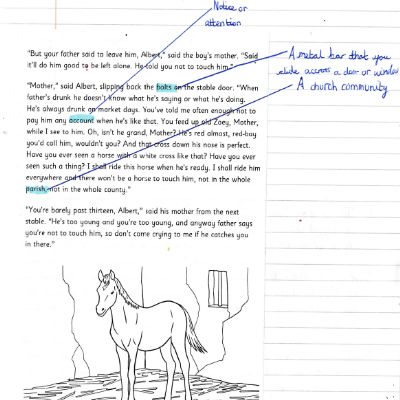 Notice or
attention
"But your father said to leave him, Albert," said the boy's mother. "Said
it'll do him good to be left alone. He told you not to touch him."
A metal bar that you
slide across a door or window
A church community
"Mother," said Albert, slipping back the bolts on the stable door. "When
father's drunk he doesn't know what he's saying or what he's doing.
He's always drunk on market days. You've told me often enough not to
pay him any account when he's like that. You feed up old Zoey, Mother,
while I see to him. Oh, isn't he grand, Mother? He's red almost, red-bay
you'd call him, wouldn't you? And that cross down his nose is perfect.
Have you ever seen a horse with a white cross like that? Have you ever
seen such a thing? I shall ride this horse when he's ready. I shall ride him
everywhere and there won't be a horse to touch him, not in the whole
parish, not in the whole county."
"You're barely past thirteen, Albert," said his mother from the next
stable. "He's too young and you're too young, and anyway father says
you're not to touch him, so don't come crying to me if he catches you
in there."